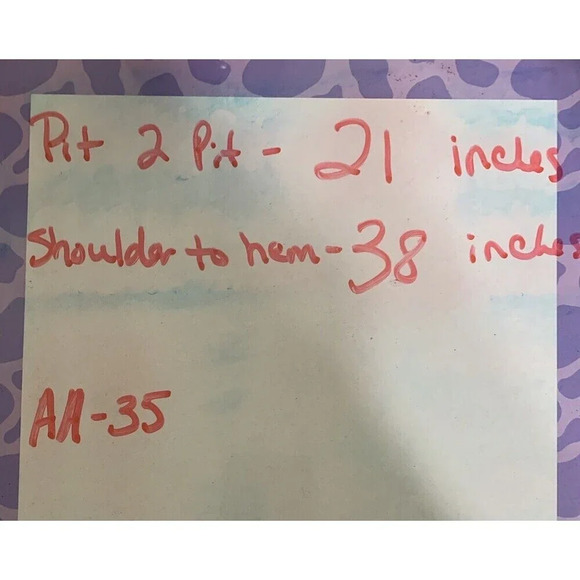 Pit 2 Pit - 21 inches
Shoulder to hem - 38 inches
All - 35